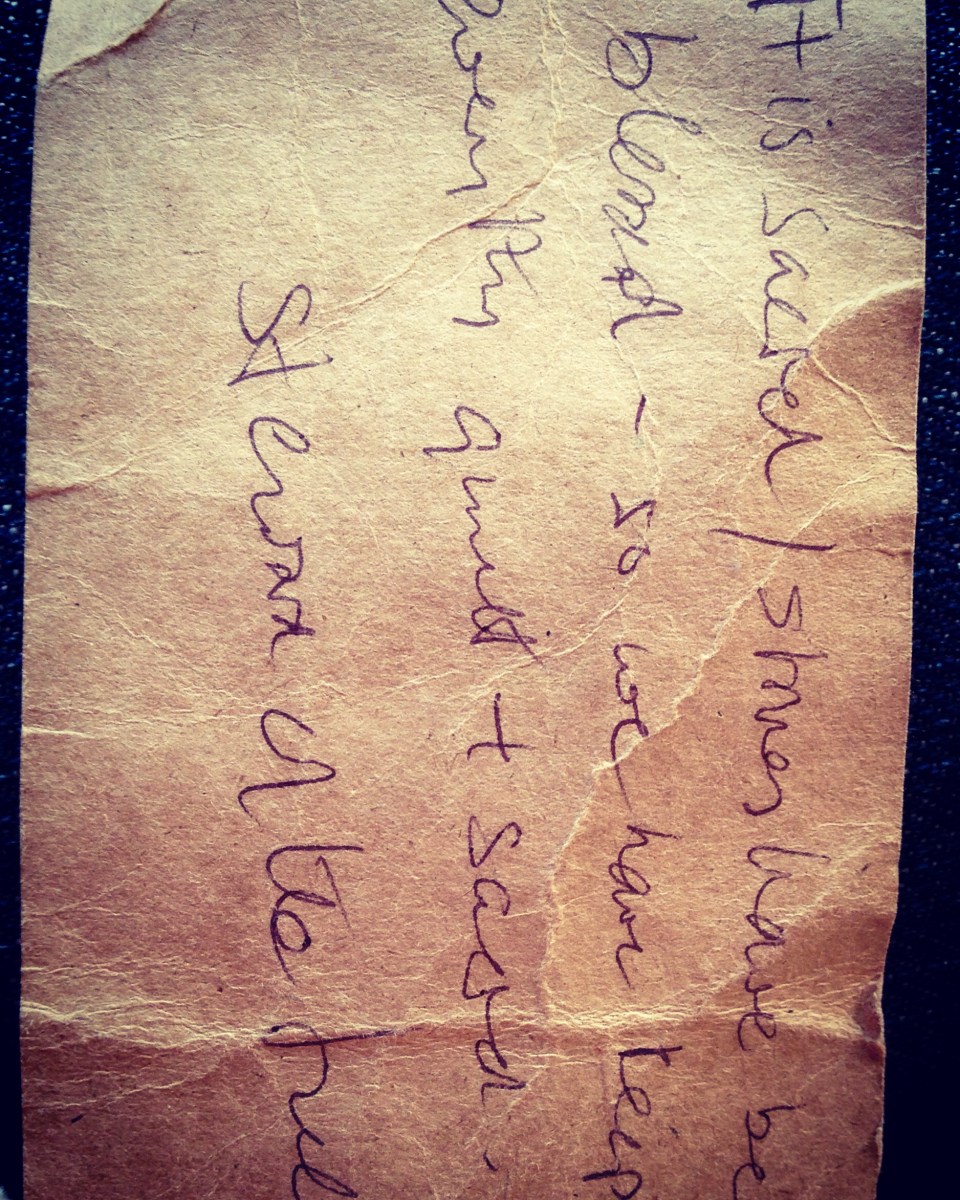 It is sacred / stones have be
blessed - so we have keep
everything quiet + sacred.
St at the